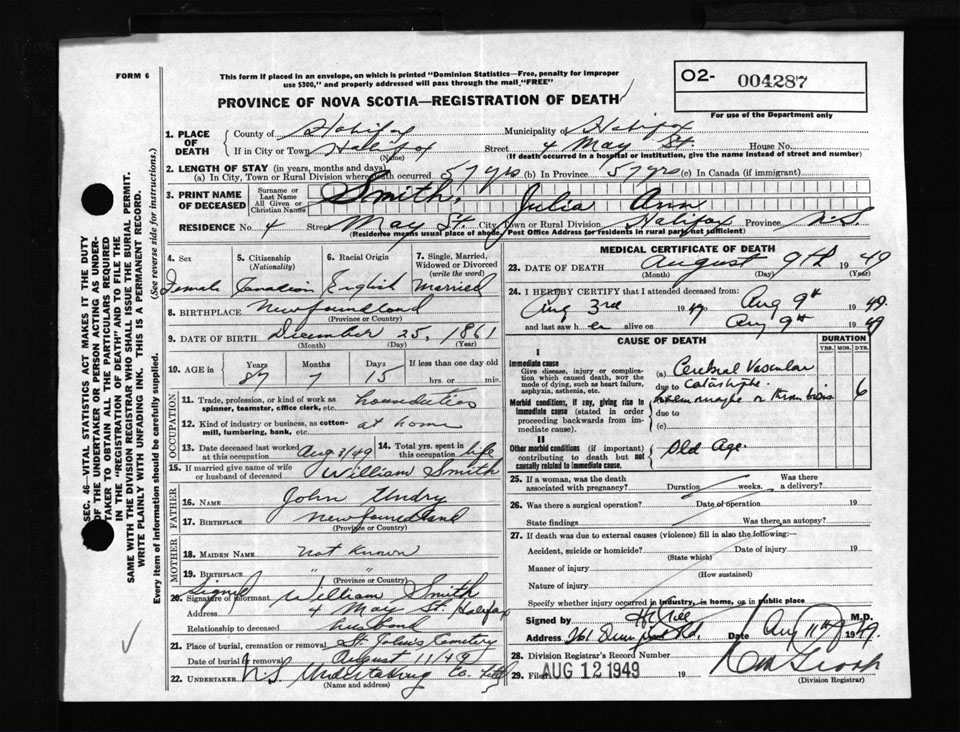 FORM 6
This form if placed in an envelope, on which is printed "Dominion Statistics—Free, penalty for improper
use $300," and properly addressed will pass through the mail "FREE"
O2- 004287
For use of the Department only
PROVINCE OF NOVA SCOTIA—REGISTRATION OF DEATH
1. PLACE OF DEATH
County of Halifax Municipality of Halifax
If in City or Town Halifax Street 4 May St. House No.
(Name) (If death occurred in a hospital or institution, give the name instead of street and number)
2. LENGTH OF STAY (in years, months and days)
(a) In City, Town or Rural Division where death occurred 57 yrs (b) In Province 57 yrs (c) In Canada (if immigrant)
3. PRINT NAME OF DECEASED
Surname or Last Name Smith,
All Given or Christian Names Julia Ann
RESIDENCE No. 4 Street May St. City, Town or Rural Division Halifax Province N.S.
(Residence means usual place of abode. Post Office Address for residents in rural parts not sufficient)
4. Sex 5. Citizenship (Nationality) 6. Racial Origin 7. Single, Married, Widowed or Divorced (write the word)
Female Canadian English Married
8. BIRTHPLACE Newfoundland
(Province or Country)
9. DATE OF BIRTH December 25, 1861
(Month) (Day) (Year)
10. AGE in Years Months Days If less than one day old
87 7 15 hrs. or min.
OCCUPATION
11. Trade, profession, or kind of work as spinner, teamster, office clerk, etc. housduties
12. Kind of industry or business, as cotton-mill, lumbering, bank, etc. at home
13. Date deceased last worked at this occupation Aug 3/49 14. Total yrs. spent in this occupation life
15. If married give name of wife or husband of deceased William Smith
FATHER
16. NAME John Undry
17. BIRTHPLACE Newfoundland
(Province or Country)
MOTHER
18. MAIDEN NAME not Known
19. BIRTHPLACE " "
(Province or Country)
Signed
20. Signature of informant William Smith
Address 4 May St. Halifax
Relationship to deceased husband
21. Place of burial, cremation or removal St. John's Cemetery
Date of burial or removal August 11/49
22. UNDERTAKER N.S. Undertaking Co. Ltd
(Name and address)
MEDICAL CERTIFICATE OF DEATH
23. DATE OF DEATH August 9th 1949
(Month) (Day) (Year)
24. I HEREBY CERTIFY that I attended deceased from:
Aug 3rd 1949 Aug 9th 1949
and last saw her alive on Aug 9th 1949
CAUSE OF DEATH DURATION
YRS. MOS. DYS.
I
Immediate cause
Give disease, injury or complication which caused death, NOT the mode of dying, such as heart failure, asphyxia, asthenia, etc.
(a) Cerebral Vascular
due to catastrophe.
Morbid conditions, if any, giving rise to immediate cause (stated in order proceeding backwards from immediate cause).
hemorrhage or thrombosis 6
due to
(c)
II
Other morbid conditions (if important) contributing to death but not causally related to immediate cause.
Old Age.
25. If a woman, was the death associated with pregnancy? Duration weeks. Was there a delivery?
26. Was there a surgical operation? Date of operation 19
State findings Was there an autopsy?
27. If death was due to external causes (violence) fill in also the following:—
Accident, suicide or homicide? Date of injury 19
(State which)
Manner of injury
(How sustained)
Nature of injury
Specify whether injury occurred in industry, in home, or in public place
Signed by M.D.
Address Date Aug 11th 1949.
28. Division Registrar's Record Number
29. Filed AUG 12 1949 19
(Division Registrar)
SEC. 46—VITAL STATISTICS ACT MAKES IT THE DUTY
OF THE UNDERTAKER OR PERSON ACTING AS UNDER-
TAKER TO OBTAIN ALL THE PARTICULARS REQUIRED
IN THE "REGISTRATION OF DEATH" AND TO FILE THE
SAME WITH THE DIVISION REGISTRAR WHO SHALL ISSUE THE BURIAL PERMIT.
WRITE PLAINLY WITH UNFADING INK. THIS IS A PERMANENT RECORD.
Every item of information should be carefully supplied. (See reverse side for instructions.)